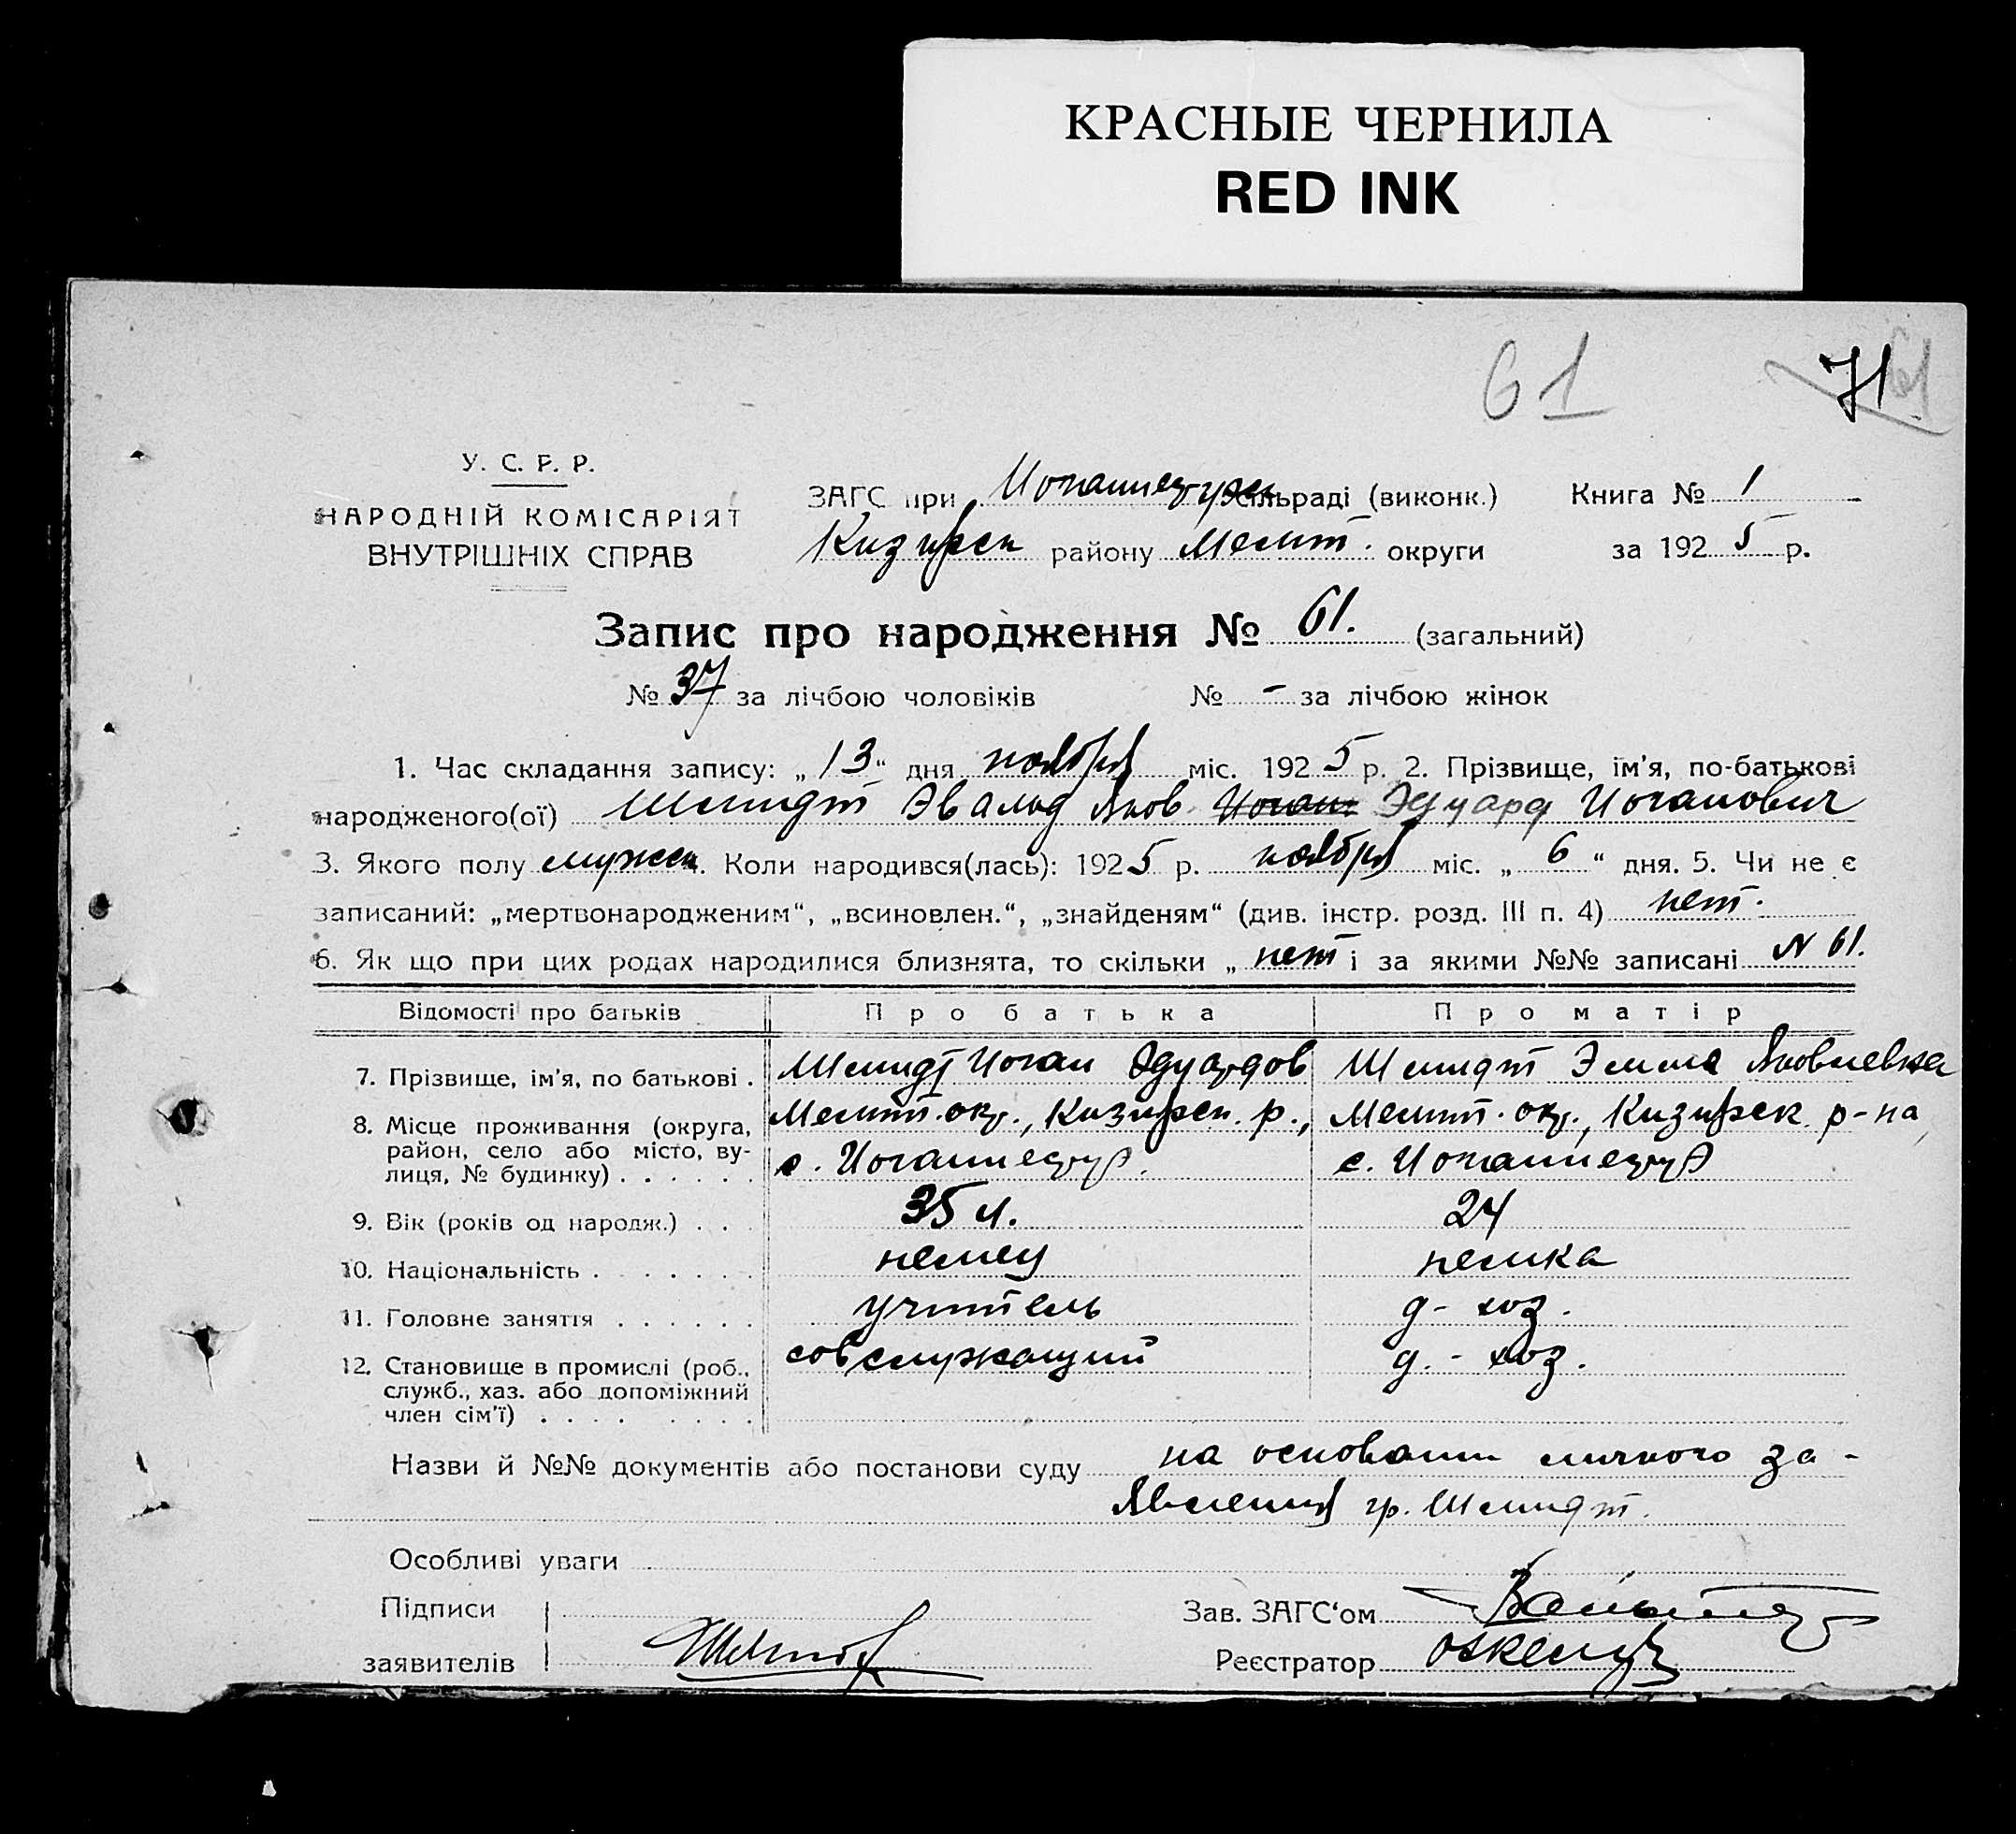 КРАСНЫЕ ЧЕРНИЛА
RED INK
61 71 61
У. С. Р. Р.
НАРОДНІЙ КОМІСАРІЯТ
ВНУТРІШНІХ СПРАВ
ЗАГС при Иоганнесруск сільраді (виконк.) Книга № 1
Кизиярск району Мелит. округи за 1925 р.
Запис про народження № 61. (загальний)
№ 37 за лічбою чоловіків № - за лічбою жінок
1. Час складання запису: „13“ дня ноября міс. 1925 р. 2. Прізвище, ім’я, по-батькові
народженого(ої) Шмидт Эвальд Яков Иоган Эдуард Иоганович
3. Якого полу мужск. Коли народився(лась): 1925 р. ноября міс. „6“ дня. 5. Чи не є
записаний: „мертвонародженим“, „всиновлен.“, „знайденям“ (див. інстр. розд. III п. 4) нет.
6. Як що при цих родах народилися близнята, то скільки „нет і за якими №№ записані N 61.
Відомості про батьків Про батька Про матір
7. Прізвище, ім’я, по батькові . Шмидт Иоган Эдуардов Шмидт Эмма Яковлевна
8. Місце проживання (округа, район, село або місто, вулиця, № будинку) . . . . . . Мелит. окр., Кизиярск. р., Мелит. окр., Кизиярск. р-на,
с. Иоганнесру. с. Иоганнесру
9. Вік (років од народж.) . . . 35 л. 24
10. Національність . . . . . . . немец немка
11. Головне заняття . . . . . . учитель д-хоз.
12. Становище в промислі (роб., служб., хаз. або допоміжний член сім’ї) . . . . . . . . совслужащий д.-хоз.
Назви й №№ документів або постанови суду на основании личного за-
явления гр. Шмидт.
Особливі уваги
Підписи Зав. ЗАГС‘ом
заявителів Реєстратор